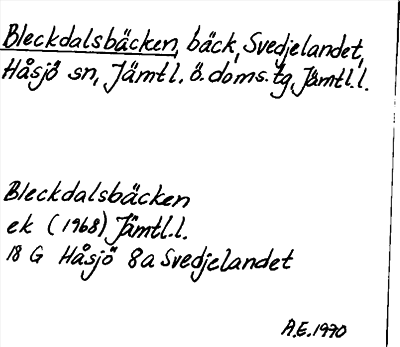 Bleckdalsbäcken, bäck, Svedjelandet,
Håsjö sn, Jämtl. ö. doms. tg, Jämtl.l.
Bleckdalsbäcken
ek (1968) Jämtl.l.
18 G Håsjö 8a Svedjelandet
A.E. 1970